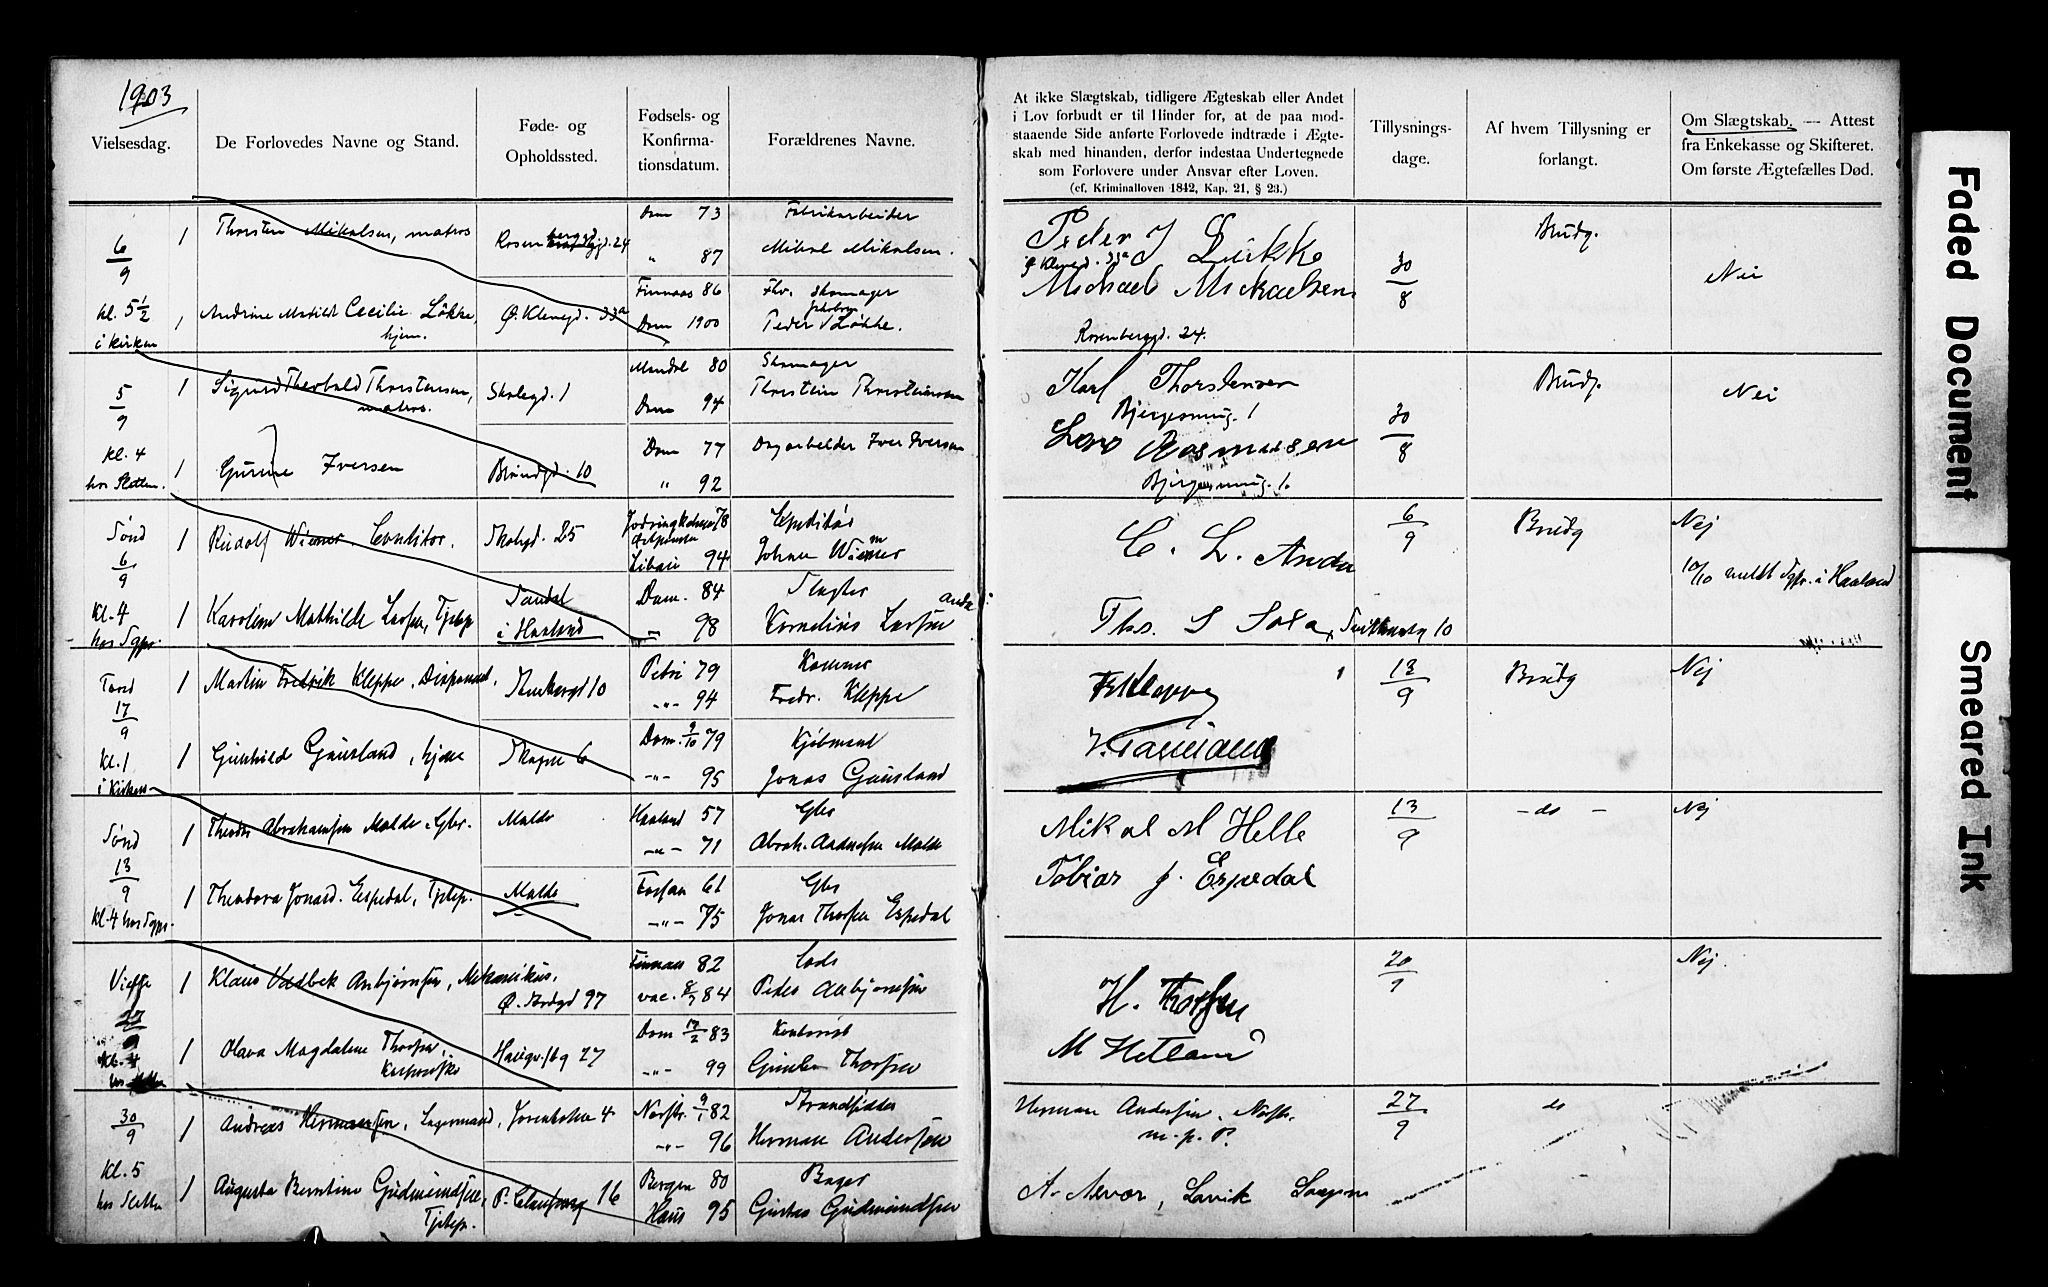 1903
Vielsesdag.
De Forlovedes Navne og Stand.
Føde- og
Opholdssted.
Fødsels- og
Konfirma-
tionsdatum.
Forældrenes Navne.
At ikke Slægtskab, tidligere Ægteskab eller Andet
i Lov forbudt er til Hinder for, at de paa mod-
staaende Side anførte Forlovede indtræde i Ægte-
skab med hinanden, derfor indestaa Undertegnede
som Forlovere under Ansvar efter Loven.
(cf. Kriminalloven 1842, Kap. 21, § 23.)
Tillysnings-
dage.
Af hvem Tillysning er
forlangt.
Om Slægtskab. — Attest
fra Enkekasse og Skifteret.
Om første Ægtefælles Død.
6/9
kl. 5 1/2
i kirken
1 Thorsten Mikalsen, matros
Rosenberggd. 24
Dom 73
" 87
Fabrikarbeider
Mikal Mikalsen.
1 Andrine Matilde Cecilie Løkke,
hjem.
Ø. Klevegd. 33a
Finnaas 86
Dom 1900
Fhv. Skomager
Peder Jakobsen Løkke.
Peder J Lükke
Ø Klevegd. 33a
Michael Mickaelsen
Rosenberggd. 24.
30/8
Brudg.
Nei
5/9
kl. 4
hos Sletten.
1 Sigurd Theobald Thorstensen,
matros.
Skolegd. 1
Mandal 80
Dom 94
Skomager
Thorstein Thorsteinsen
1 Gurine Iversen
Brøndgd. 10
Dom 77
" 92
Dagarbeider Iver Iversen
Karl Thorstensen
Bjergesmug. 1
Lars Rasmussen
Bjergesmug. 1.
30/8
Brudg.
Nei
Sønd
6/9
Kl. 4
hos Sgpr.
1 Rudolf Wiemer, Conditor.
Skolegd. 25
78
Libau 94
Expeditør
Johan Wiemer
1 Karoline Mathilde Larsen, Tjstep
Sandal
i Haaland
Dom. 84
-"- 98
Slagter
Kornelius Larsen
C. L. Anda
Ths. S Sola, 10
6/9
Brudg
Nej
10/10 meldt Sgpr. i Haaland
Torsd
17/9
Kl. 1
i Kirken
1 Martin Fredrik Kleppe, Disponent.
Stenbergd 10
Petri 79
-"- 94
Kæmner
Fredr. Kleppe
1 Gunhild Gausland, hjem
Skagen 6
Dom. 9/10 79
-"- 95
Kjøbmand
Jonas Gausland
F. Kleppe
13/9
Brudg
Nej
Sønd
13/9
Kl. 4 hos Sgpr.
1 Theodor Abrahamsen Malde, Gbr.
Malde
Haaland 57
-"- 71
Gbr
Abrah. Andersen Malde
1 Theodora Jonasd. Espedal, Tjstep.
Malde
Fossan 61
-"- 75
Gbr
Jonas Thorsen Espedal
Mikal M Helle
Tobias J. Espedal
13/9
- do -
Nej
Viesse
27/9
Kl. 4
1 Klaus Vadbek Anbjørnsen, Mekanikus,
Ø. Strdgd 97
Finnaas 82
vac. 8/7 84
Lods
Peder Anbjørnsen
1 Olava Magdalene Thorsen,
Haugvalsg 27
Dom 12/2 83
-"- 99
Kontorist
Gunder Thorsen
H. Thorsen
M Hetland
20/9
Nej.
30/9
Kl. 5
hos Sletten
1 Andreas Hermansen, Lagermand,
Jorenholmen 4
Norstr. 9/1 82
-"- 96
Strandsidder
Herman Andersen
1 Augusta Berntine Gudmundsen,
Tjstep.
P. Clausensg 16
Bergen 80
Haus 95
Bager
Gustav Gudmundsen
Herman Andersen, Norstr.
m. p. P.
A. Nevøe, Lervik
27/9
do
Faded Document
Smeared Ink